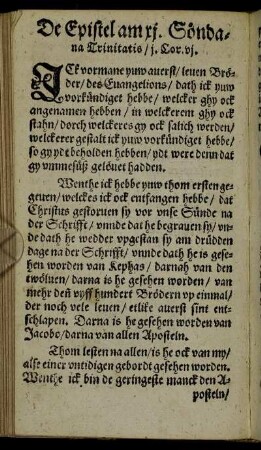 De Epistel am xj. Sönda-
na Trinitatis / j. Cor. vj.
ICk vormane yuw auerst / leuen Brö-
der / des Euangelions / dath ick yuw
vorkündiget hebbe / welcker ghy ock
angenamen hebben / in welckerem ghy ock
stahn / dorch welckeres gy ock salich werden /
welckerer gestalt ick yuw vorkündiget hebbe /
so gy ydt beholden hebben / ydt were denn dat
gy vmmesüß gelöuet hadden.
Wenthe ick hebbe yuw thom ersten ge-
geuen / welckes ick ock entfangen hebbe / dat
Christus gestoruen sy vor vnse Sünde na
der Schrifft / vnnde dat he begrauen sy / vn-
de dath he wedder vpgestan sy am drüdden
dage na der Schrifft / vnnde dath he is gese-
hen worden van Kephas / darnah van den
twöluen / darna is he gesehen worden / van
mehr deñ vyff hundert Brödern vp einmal /
der noch vele leuen / etlike auerst sint ent-
schlapen. Darna is he gesehen worden van
Jacobo / darna van allen Aposteln.
Thom lesten na allen / is he ock van my /
alse einer vntidigen gebordt gesehen worden.
Wenthe ick bin de geringeste manck den A-
posteln /